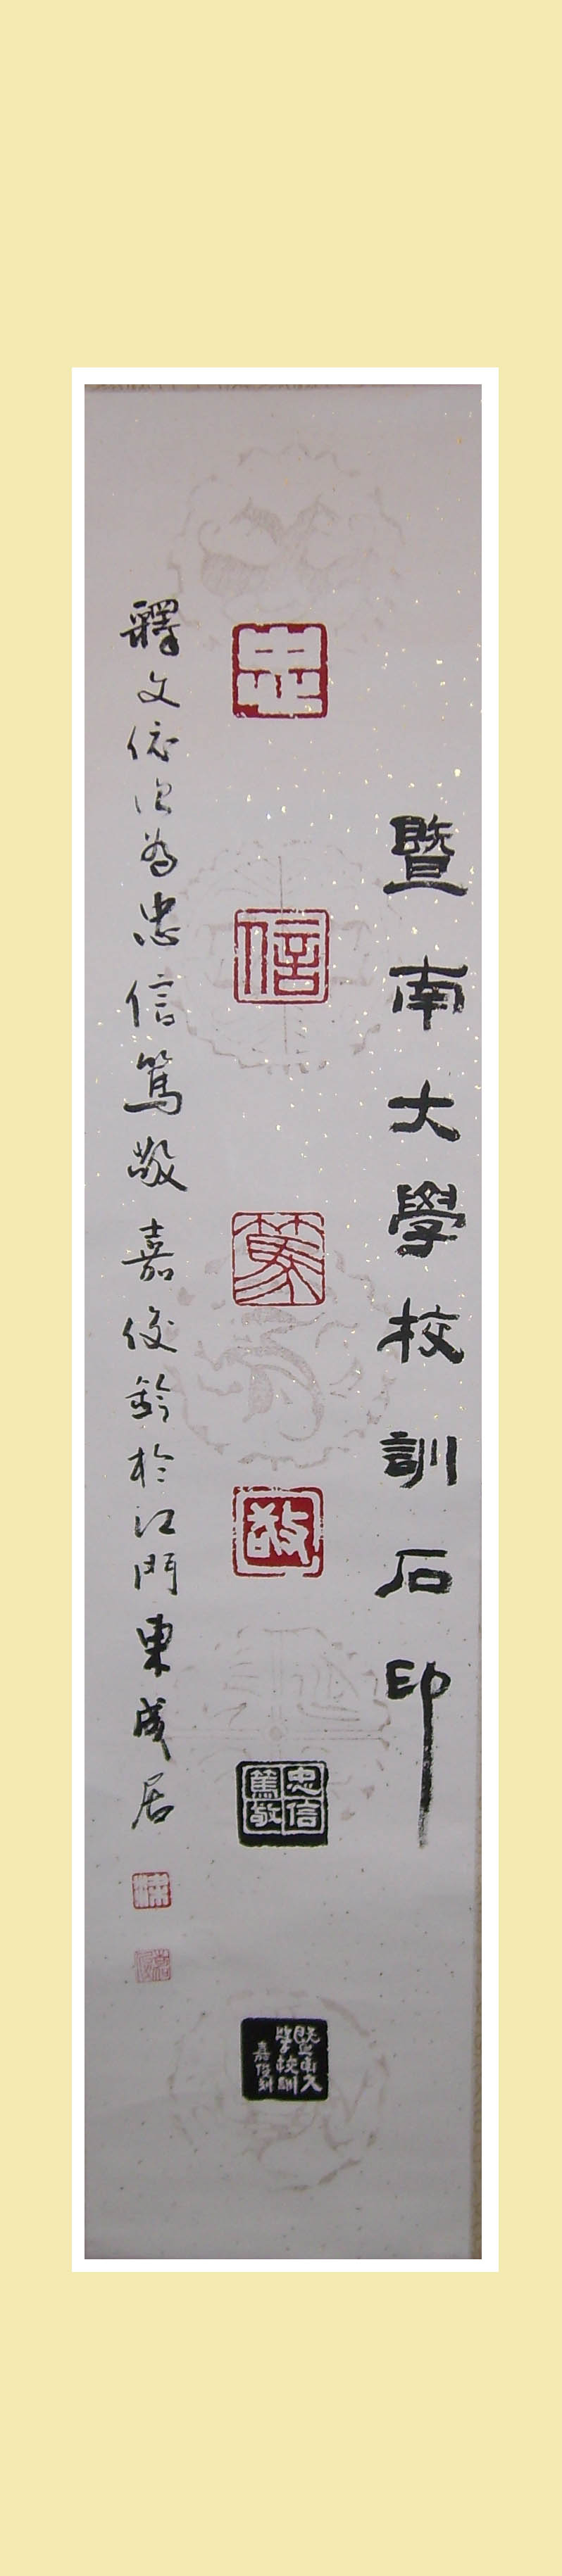 暨南大學校訓石印
忠
信
篤
敬
忠信
篤敬
暨南大
學校訓
嘉俊刻
釋文依次為忠信篤敬嘉俊鈐於江門東成居